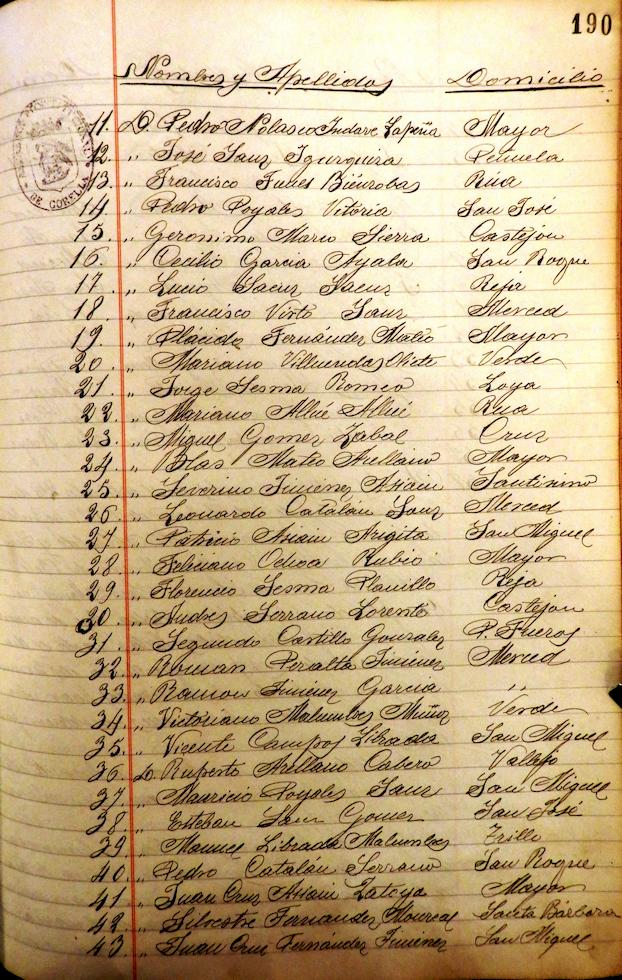 190
Nombres y Apellidos Domicilio
11. D. Pedro Nolasco Indave Lapeña Mayor
12. „ José Sanz Igurquiza Peñuela
13. „ Francisco Funes Rúa
14. „ Pedro Poyales Vitoria San José
15. „ Geronimo Marco Sierra Castejon
16. „ Cecilio Garcia Ayala San Roque
17. „ Lucio Saenz Saenz Reja
18. „ Francisco Virto Sanz Merced
19. „ Plácido Fernández Mateo Mayor
20. „ Mariano Villuendas Verde
21. „ Jorge Sesma Romeo
22. „ Mariano Allué Allué Rua
23. „ Miguel Gomez Zabal Cruz
24. „ Blas Mateo Arellano Mayor
25. „ Severino Jiménez Asiain Santisimo
26. „ Leonardo Catalán Sanz Merced
27. „ Patricio Asiain Argita San Miguel
28. „ Feliciano Ochoa Rubio Mayor
29. „ Florencio Sesma Planillo Reja
30. „ Andres Serrano Lorente Castejon
31. „ Segundo Castillo Gonzalez P. Fueros
32. „ Roman Peralta Jiménez Merced
33. „ Ramon Jiménez Garcia „
34. „ Victoriano Malumbres Muñoz Verde
35. „ Vicente Campos Librada San Miguel
36. D. Ruperto Arellano Cabero Vallejo
37. „ Mauricio Poyales Sanz San Miguel
38 „ Esteban Sanz Gomez San José
39. „ Manuel Librada Malumbres
40. „ Pedro Catalán Serrano San Roque
41 „ Juan Cruz Asiain Latoya Mayor
42. „ Silvestre Fernandez Monreal Santa Bárbara
43. „ Juan Cruz Fernández Jiménez San Miguel
DE CORELLA